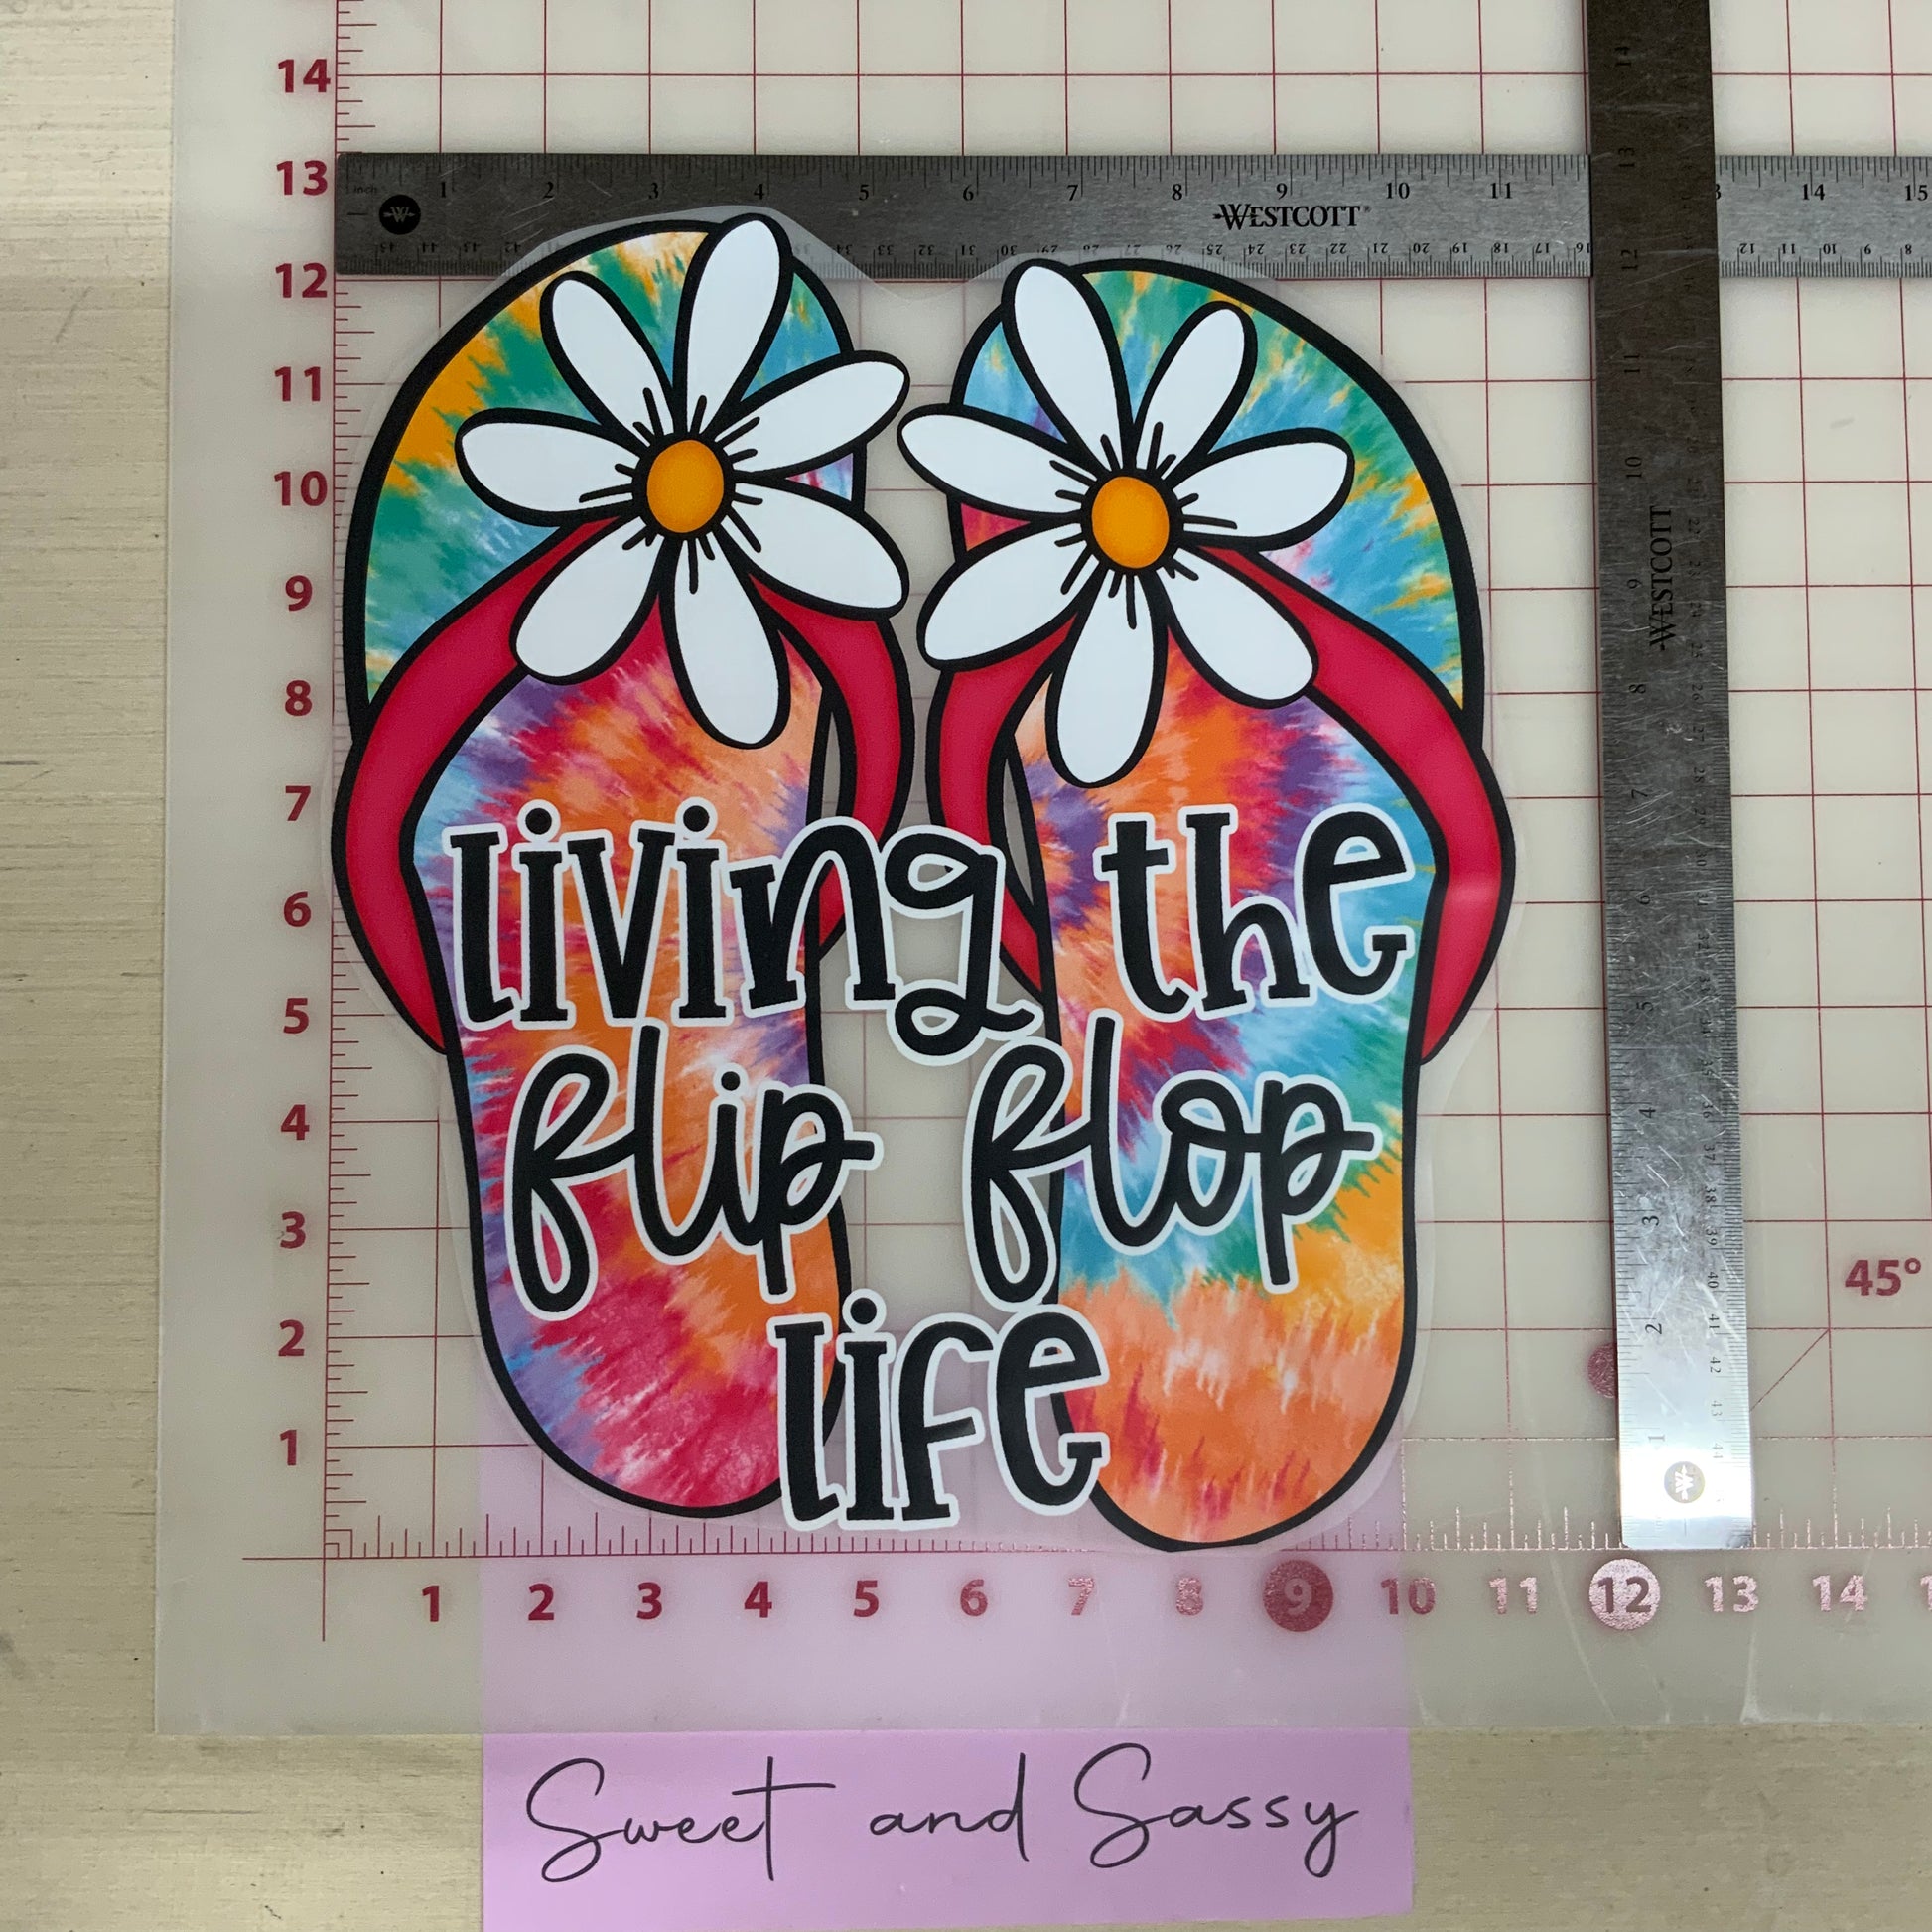 14
13
12
11
10
9
8
7
6
5
4
3
2
1
inch 1 2 3 4 5 6 7 8 9 10 11 3 14 15
WESTCOTT®
WESTCOTT
living the
flip flop
life
45°
1 2 3 4 5 6 7 8 9 10 11 12 13 14
Sweet and Sassy